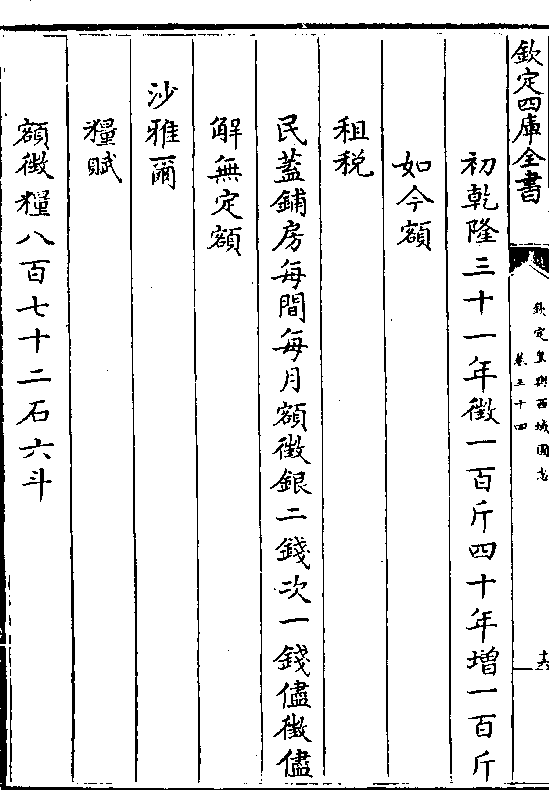 欽定四庫全書
欽定皇輿西域圖志
卷三十四
初乾隆三十一年徵一百斤四十年增一百斤
如今額
租税
民蓋鋪房每間每月額徵銀二錢次一錢儘徵儘
解無定額
沙雅爾
糧賦
額徵糧八百七十二石六斗